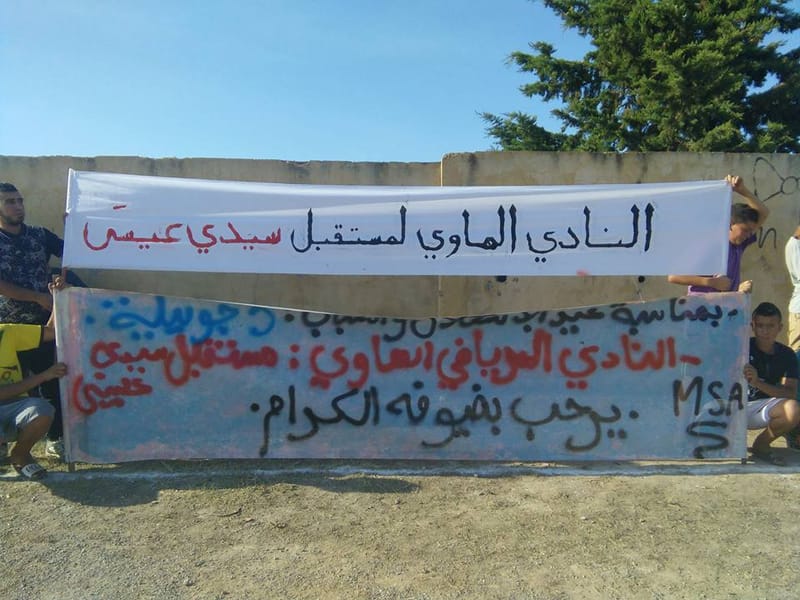 النادي الهاوي لمستقبل سيدي عيسى
- بمناسبة عيد الاستقلال والشباب: 5 جويلية.
- النادي الرياضي الهاوي: مستقبل سيدي عيسى
. يرحب بضيوفه الكرام.
MSA